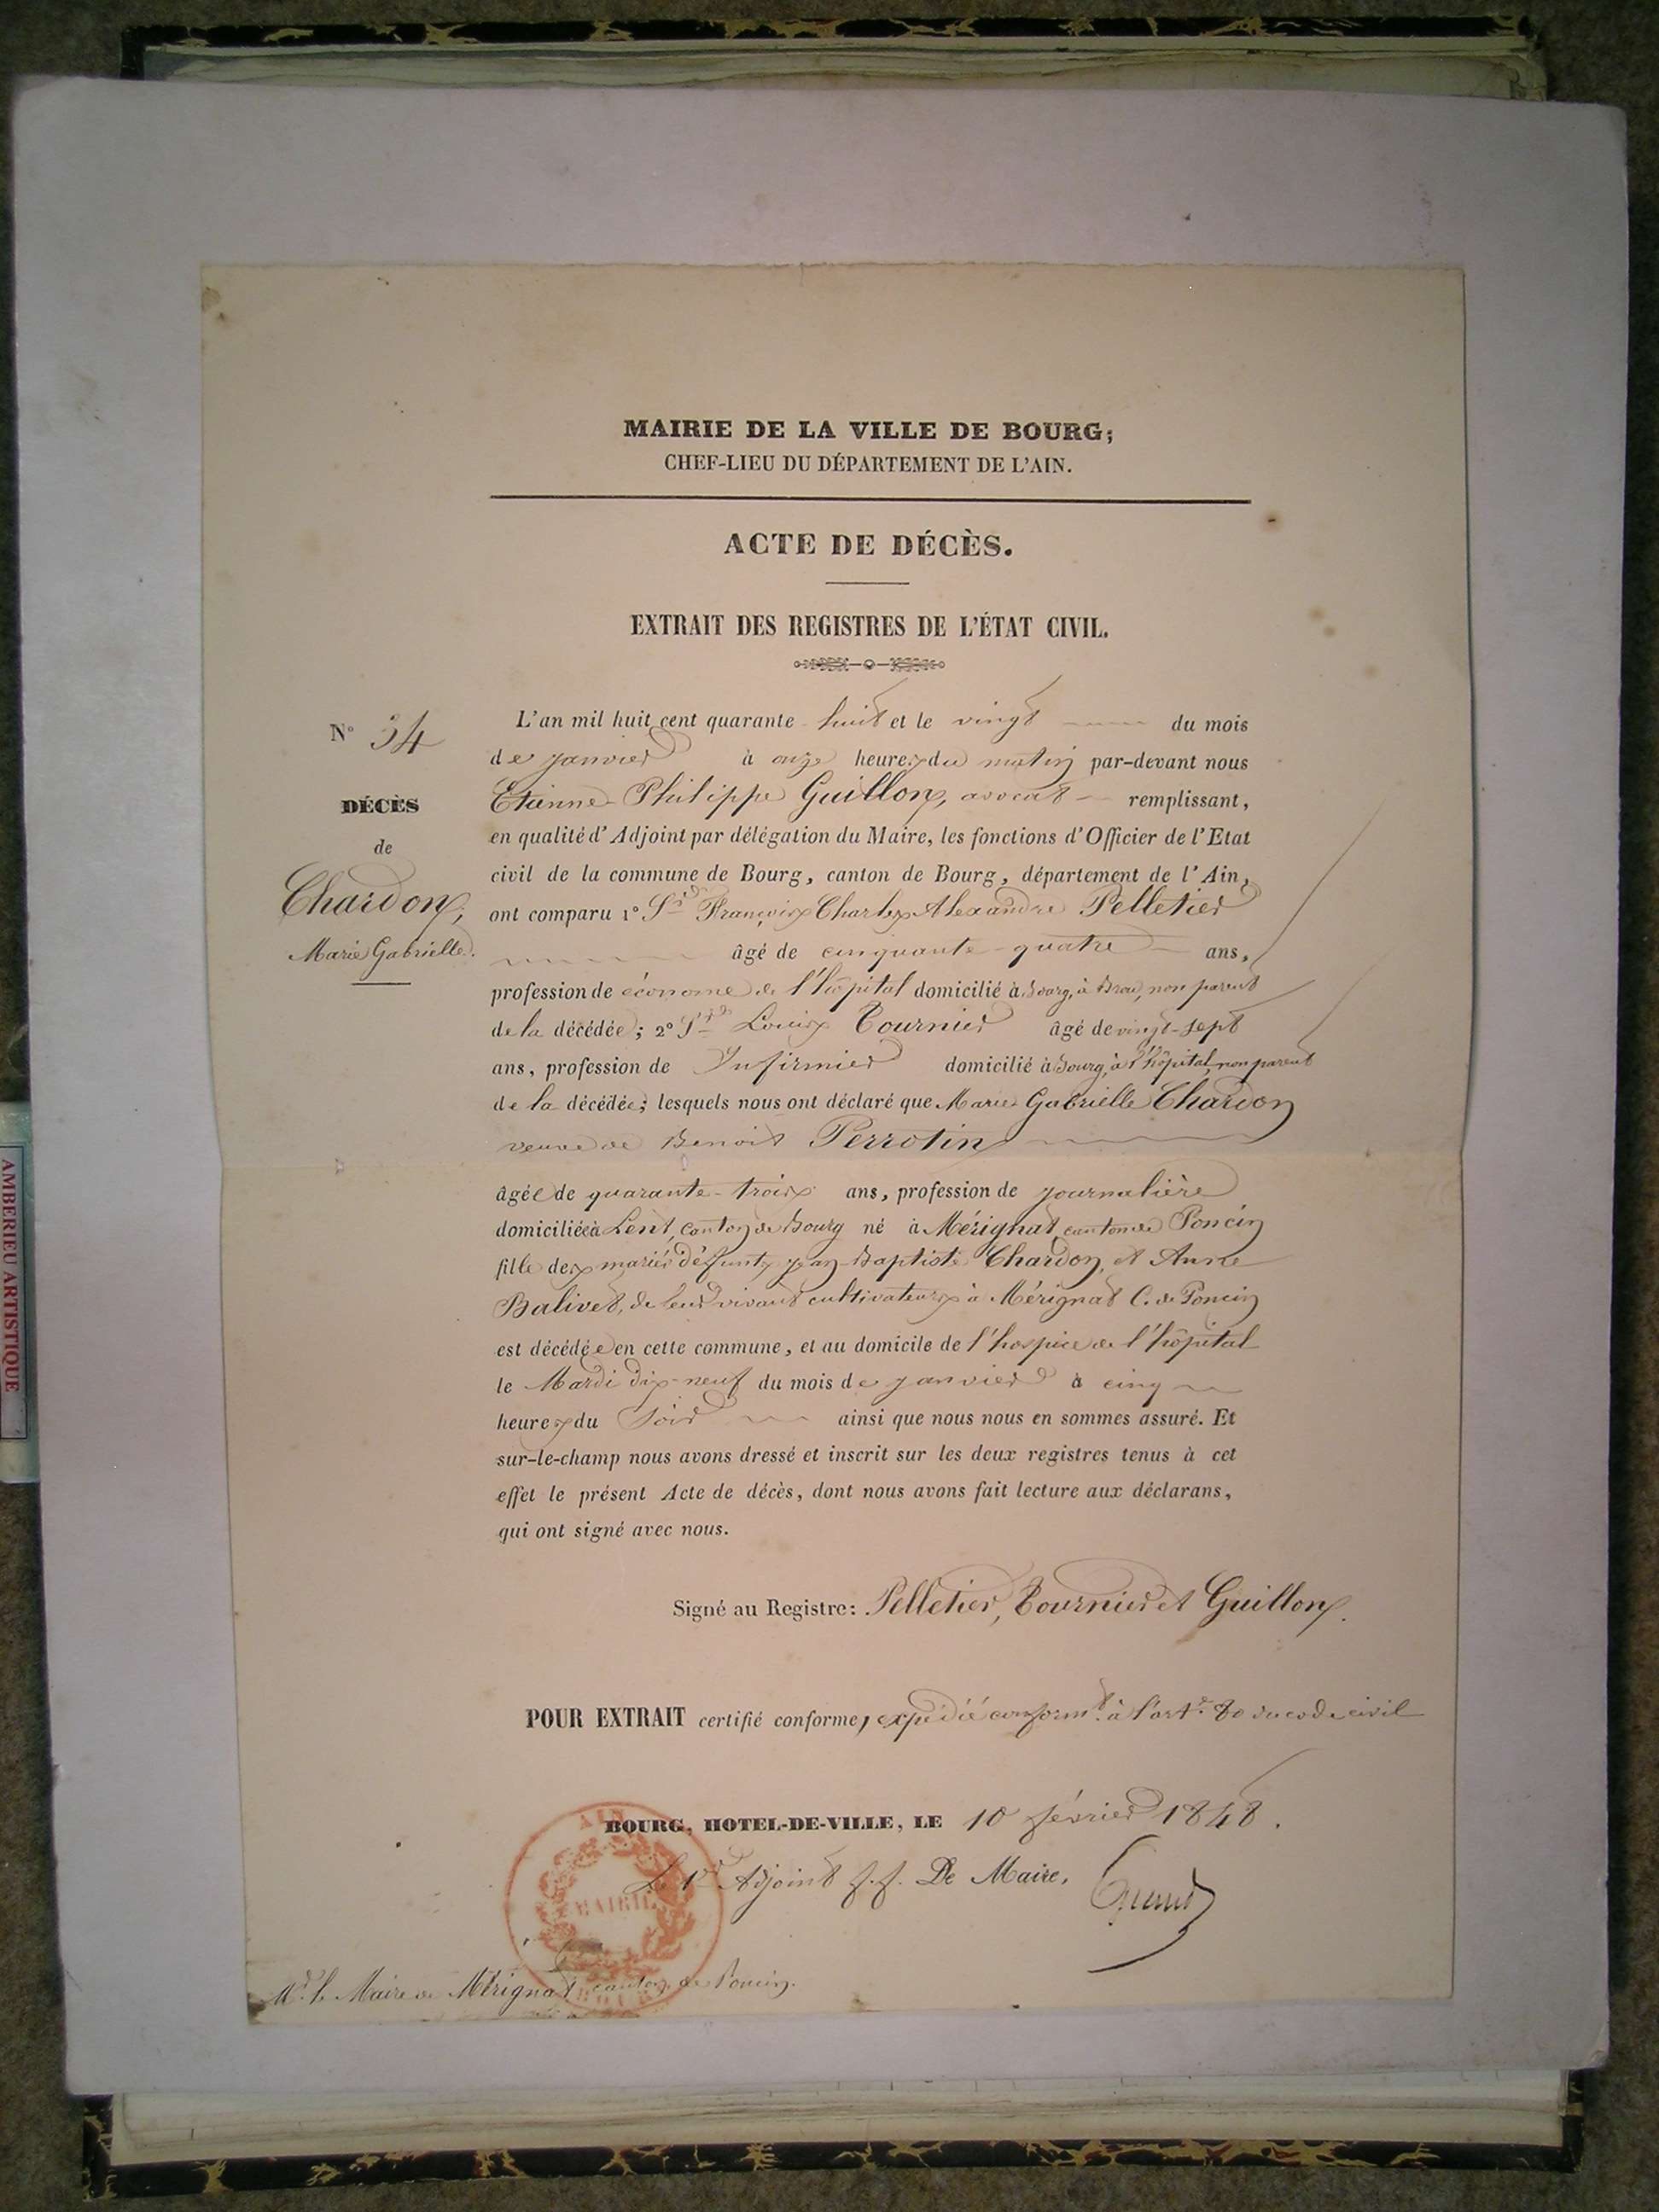 MAIRIE DE LA VILLE DE BOURG;
CHEF-LIEU DU DÉPARTEMENT DE L'AIN.
ACTE DE DÉCÈS.
EXTRAIT DES REGISTRES DE L'ÉTAT CIVIL.
N° 34
DÉCÈS
de
Chardon,
Marie Gabrielle.
L'an mil huit cent quarante huit et le vingt du mois
de janvier à onze heures du matin par-devant nous
Etienne Philippe Guillon, avocat remplissant,
en qualité d'Adjoint par délégation du Maire, les fonctions d'Officier de l'Etat
civil de la commune de Bourg, canton de Bourg, département de l'Ain,
ont comparu 1° Sr François Charles Alexandre Pelletier
âgé de cinquante-quatre ans,
profession de économe de l'hôpital domicilié à Bourg, à Brou, non parent
de la décédée; 2° Sr Louis Tournier âgé de vingt-sept
ans, profession de Infirmier domicilié à Bourg, à l'hôpital, non parent
de la décédée; lesquels nous ont déclaré que Marie Gabrielle Chardon
veuve de Benoit Perrotin
âgée de quarante-trois ans, profession de journalière
domiciliée à Lent, canton de Bourg né à Mérignat, canton de Poncin
fille des mariés défunts Jean-Baptiste Chardon, et Anne
Balivet, de leur vivant cultivateurs à Mérignat C. de Poncin
est décédée en cette commune, et au domicile de l'hospice de l'hôpital
le Mardi dix-neuf du mois de janvier à cinq
heures du soir ainsi que nous nous en sommes assuré. Et
sur-le-champ nous avons dressé et inscrit sur les deux registres tenus à cet
effet le présent Acte de décès, dont nous avons fait lecture aux déclarans,
qui ont signé avec nous.
Signé au Registre: Pelletier, Tournier et Guillon.
POUR EXTRAIT certifié conforme, expédié conformt. à l'art. 80 du code civil
BOURG, HOTEL-DE-VILLE, LE 10 février 1848.
Le 1er Adjoint f.f. De Maire,
AIN
MAIRIE
Mr. le Maire de Mérignat canton de Poncin.
AMBERIEU ARTISTIQUE